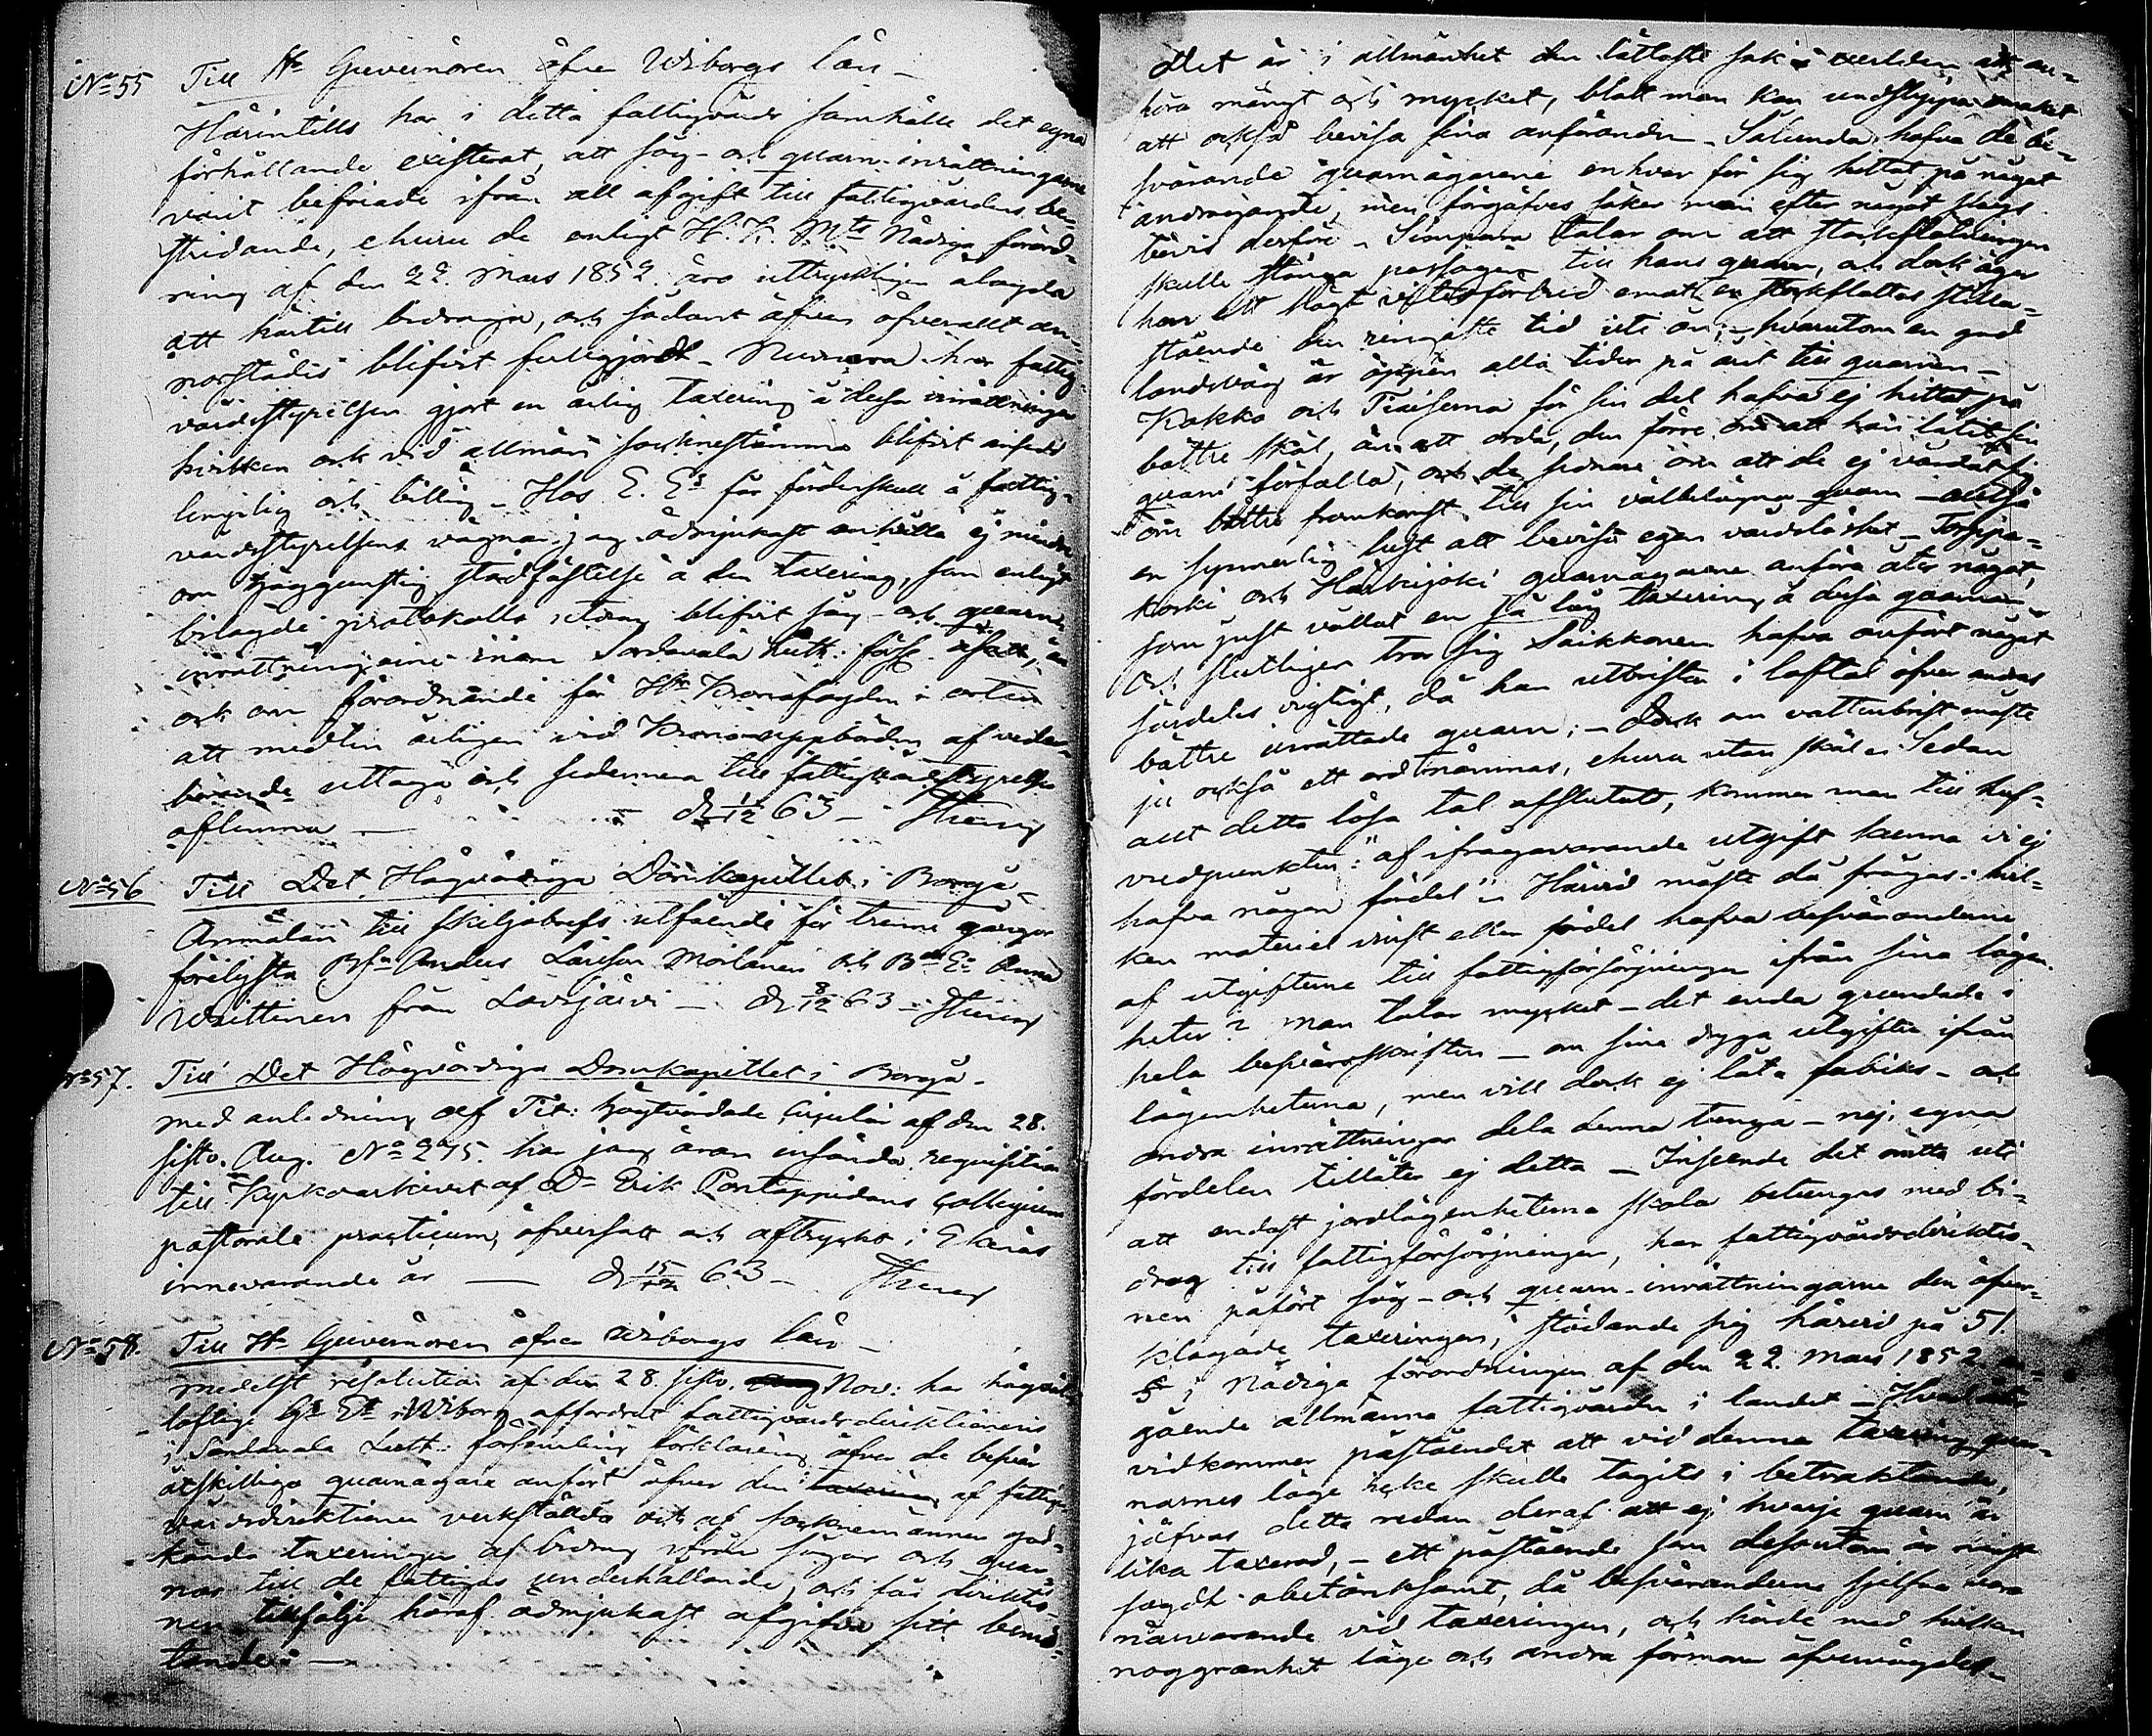 No 55 Till Hr Guvernören öfver Wiborgs län –
Härintills har i detta fattigvårds samhälle det egna
förhållande existerat, att såg- och quarn-inrättningarne
varit befriade ifrån all afgift till fattigvårdens be-
stridande, ehuru de enligt H. K. Mts Nådiga förord-
ning af den 22. Mars 1852. äro uttryckligen ålagda
att härtill bidraga, och sådant äfven öfverallt an-
norstädes blifvit fullgjordt – Numera har fattig-
vårdsstyrelsen gjort en årlig taxering å dessa inrättningar
hvilken ock vid allmän socknestämma blifvit ansedd
lämplig och billig – Hos E. Es får förderskull å fattig-
vårdsstyrelsens vägnar jag ödmjukast anhålla ej mindre
om höggunstig stadfästelse å den taxering, som enligt
bilagde protokolls utdrag blifvit såg- och quarn-
inrättningarne inom Sordavala Luth: förs:
ock om förordnande för Hr Kronofogden i orten
att medlen årligen vid Kronouppbörden af veder-
börande uttaga och sedermera till fattigvårdsstyrelsen
aflemna – d 1/12 63 –
No 56 Till Det Högvördiga Domkapitlet i Borgå –
Anmälan till skiljobrefs utfående för trenne gånger
förelysta Anders Larsson Moilanen och Anna
Waittinen från Lavijärvi – d 8/12 63 –
No 57. Till Det Högvördiga Domkapitlet i Borgå.
med anledning af Tit: högtvördade Cirkulär af den 28.
sistv. Aug. No 275. har jag äran insända requisition
till Kyrkoarkivet af Dr Erik Pontoppidans Collegium
pastorale practicum, öfversatt och aftryckt i Ekenäs
innevarande år — d 15/12 63 –
No 58. Till Hr Guvernören öfver Wiborgs län –
medelst resolution af den 28. sistv. Nov: har högväl-
loflige i Wiborg affordrat fattigvårdsdirektionens
i Sordavala Luth: församling förklaring öfver de besvär
åtskillige quarnägare anfört öfver den taxering af fattig-
vårdsdirektionen verkstälda och af socknemännen god-
kända taxeringen af bidrag ifrån sågar och quar-
nar till de fattiges underhållande, och får direktio-
nen tillfölje häraf ödmjukast afgifva sitt bemö-
tande: —
Det är i allmänhet den lättaste sak i verlden, att an-
föra mångt och mycket, blott man kan undslippa
att också bevisa sina anföranden – Sålunda hafva de be-
svärande quarnägarene enhvar för sig hittat på något
andragande, men förgäfves söker man efter något slags
bevis derför – talar om att stockflötningen
skulle stänga passagen till hans quarn, och dock äger
han ett högt
stående den ringaste tid uti ån; – hvarutom en god
landsväg är öppen alla tider på året till quarnen –
Kokko och Tiaiserna för sin del hafva ej hittat på
bättre skäl, än att orda, den förre om att han låtit sin
quarn förfalla, och de sednare om att de ej vårdat sig
om bättre framkomst till sin välbelägna quarn – alltså
en synnerlig lust att bevisa egen vårdslöshet –
koski och Härkijoki quarnägarene anföra åter något,
som just vållat en så låg taxering å dessa quarnar –
Och slutligen tror sig Saikkonen hafva anfört något
särdeles vigtigt, då han utbrister i loftal öfver andras
bättre inrättade quarn; – Dock om vattenbrist måste
ju också ett ord nämnas, ehuru utan skäl. Sedan
allt detta lösa tal afslutats, kommer man till huf-
vudpunkten: "af ifrågavarande utgift kunna vi ej
hafva någon fördel" – Härvid måste då frågas: hvil-
ken materiel vinst eller fördel hafva besvärandene
af utgifterne till fattigförsörjningen ifrån sina lägen-
heter? man talar mycket – det enda grundade i
hela besvärsskriften – om sina dryga utgifter ifrån
lägenheterna, men vill dock ej låta fabriks- och
andra inrättningar dela denna tunga – nej, egna
fördelen tillåter ej detta – Inseende det orätta uti
att endast jordlägenheterna skola betungas med bi-
drag till fattigförsörjningen, har fattigvårdsdirektio-
nen påfört såg- och quarn-inrättningarne den öfver-
klagade taxeringen, stödande sig härvid på 51.
§ i Nådiga förordningen af den 22. Mars 1852 an-
gående allmänna fattigvården i landet –
vidkommer påståendet att vid denna taxering quar-
narnes läge icke skulle tagits i betraktande,
jäfvas detta redan deraf att ej hvarje quarn är
lika taxerad, – ett påstående som dessutom är minst
sagdt obetänksamt, då besvärandene sjelfva voro
närvarande vid taxeringen, och hörde med hvilken
noggranhet läge och andra förmåner öfvervägdes –